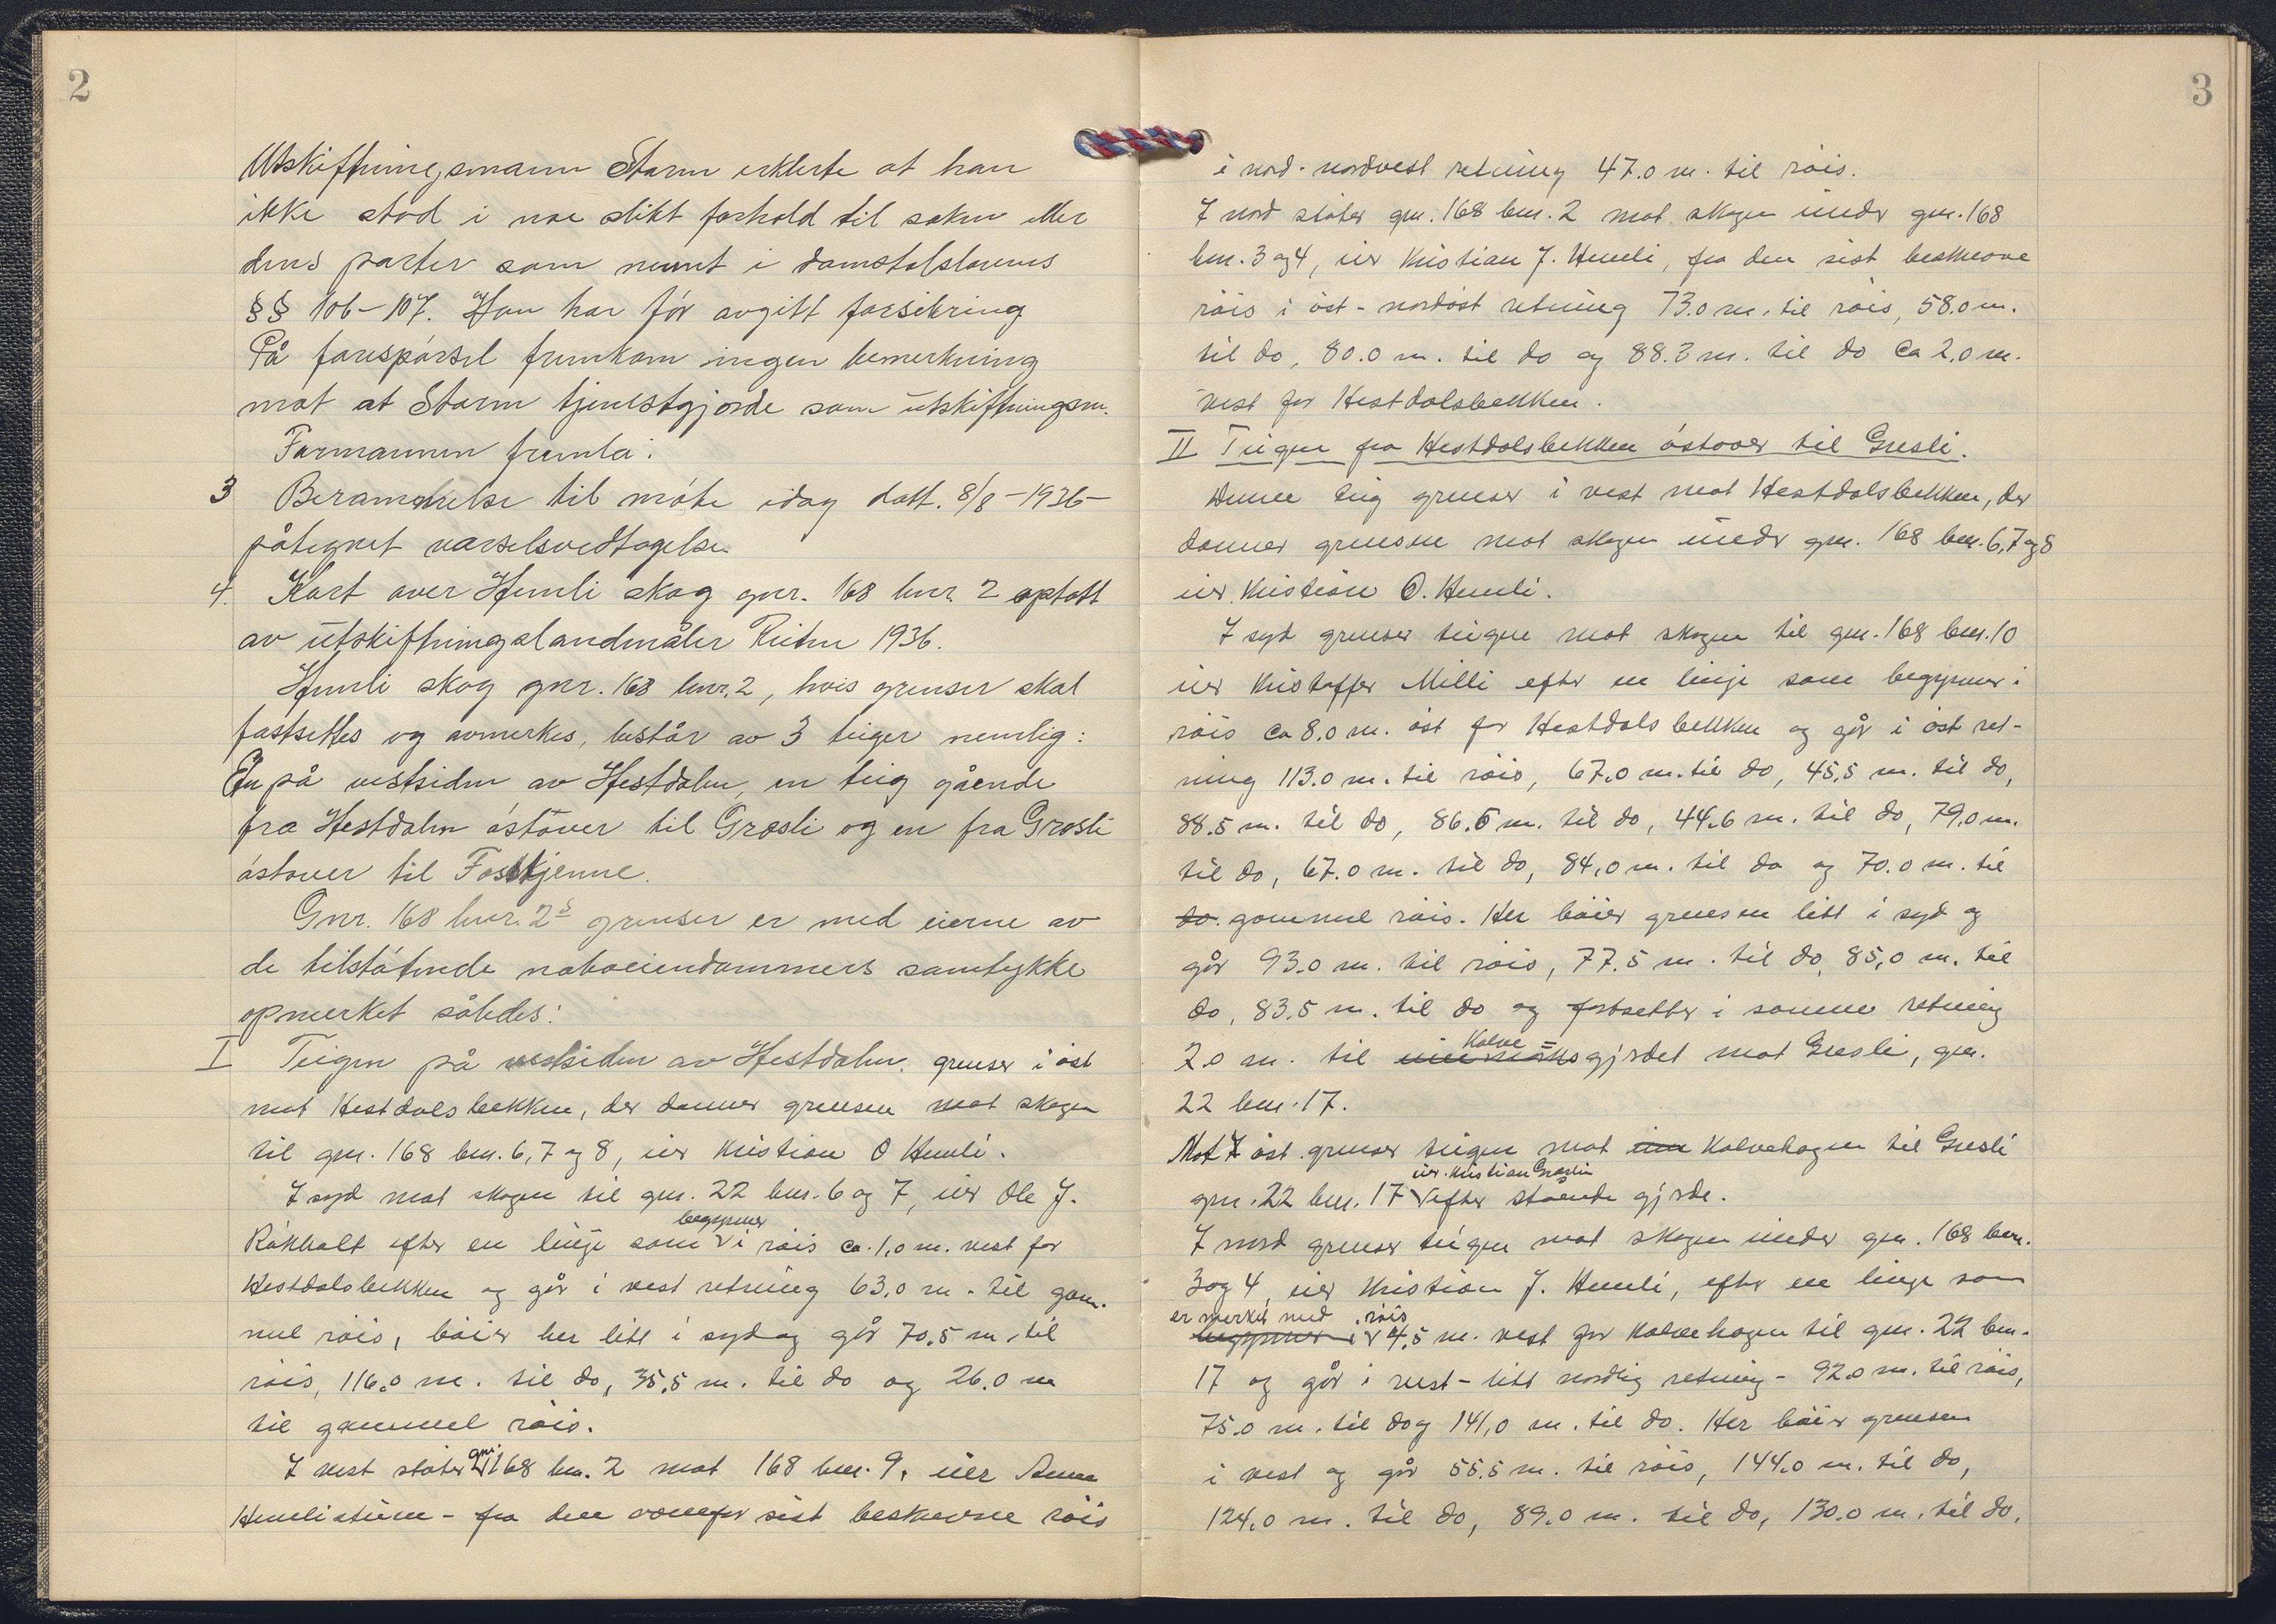 2
Utskiftningsmann Storm erklerte at han
ikke stod i noe slikt forhold til saken eller
dens parter som nevnt i domstolslovens
§§ 106-107. Han har før avgitt forsikring
På forespørsel fremkom ingen bemerkning
mot at Storm tjenestgjorde som utskiftningsm.
Formannen fremla:
3 Berammelse til møte idag datt. 8/8-1936-
påtegnet varselsvedtagelse.
4. Kart over Hemli skog gnr. 168 bnr. 2 optatt
av utskiftningslandmåler 1936.
Hemli skog gnr. 168 bnr. 2, hvis grenser skal
fastsettes og avmerkes, består av 3 teiger nemlig:
En på vestsiden av Hestdalen, en teig gående
fra Hestdalen østover til Grøsli og en fra Grøsli
østover til Fosstjenne.
Gnr. 168 bnr. 2s grenser er med eierne av
de tilstøtende naboeiendommers samtykke
opmerket således:
I Teigen på vestsiden av Hestdalen. grenser i øst
mot Hestdalsbekken, der danner grensen mot skogen
til gnr. 168 bnr. 6, 7 og 8, eier Kristian O Hemli.
I syd mot skogen til gnr. 22 bnr. 6 og 7, eier Ole J.
Råkhalt efter en linje som begynner i røis ca. 1,0 m. vest for
Hestdalsbekken og går i vest retning 63,0 m. til gam-
mel røis, bøier her litt i syd og går 70,5 m. til
røis, 116.0 m. til do, 35,5 m. til do og 26.0 m
til gammel røis.
I vest støter gnr. 168 bnr. 2 mot 168 bnr. 9, eier Anna
Hemlistuen - fra den ovenfor sist beskrevne røis
3
i nord-nordvest retning 47.0 m. til røis.
I nord støter gnr. 168 bnr. 2 mot skogen under gnr. 168
bnr. 3 og 4, eier Kristian J. Hemli, fra den sist beskrevne
røis i øst-nordøst retning 73.0 m. til røis, 58.0 m.
til do, 80.0 m. til do og 88.3 m. til do ca 2,0 m.
vest for Hestdalsbekken.
II Teigen fra Hestdalsbekken østover til Grøsli.
Denne teig grenser i vest mot Hestdalsbekken, der
danner grensen mot skogen under gnr. 168 bnr. 6, 7 og 8
eier Kristian O. Hemli.
I syd grenser teigen mot skogen til gnr. 168 bnr. 10
eier Kristoffer Milli efter en linje som begynner i
røis ca 8,0 m. øst for Hestdalsbekken og går i øst ret-
ning 113.0 m. til røis, 67.0 m. til do, 45,5 m. til do,
88.5 m. til do, 86.5 m. til do, 44.6 m. til do, 79,0 m.
til do, 67.0 m. til do, 84,0 m. til do og 70.0 m. til
do. gammel røis. Her bøier grensen litt i syd og
går 93.0 m. til røis, 77.5 m. til do, 85,0 m. til
do, 83.5 m. til do og fortsetter i samme retning
2.0 m. til Kalve=gjerdet mot Grøsli, gnr.
22 bnr. 17.
Mot I øst grenser teigen mot Kalvehagen til Grøsli
gnr. 22 bnr. 17 eier Kristian Grøsli efter stående gjerde.
I nord grenser teigen mot skogen under gnr. 168 bnr.
3 og 4, eier Kristian J. Hemli, efter en linje som
er merket med røis begynner i 4,5 m. vest for Kalvehagen til gnr. 22 bnr.
17 og går i vest - litt nordlig retning - 92.0 m. til røis,
75.0 m. til do og 141,0 m. til do. Her bøier grensen
i vest og går 55.5 m. til røis, 144.0 m. til do,
124.0 m. til do, 89.0 m. til do, 130.0 m. til do,